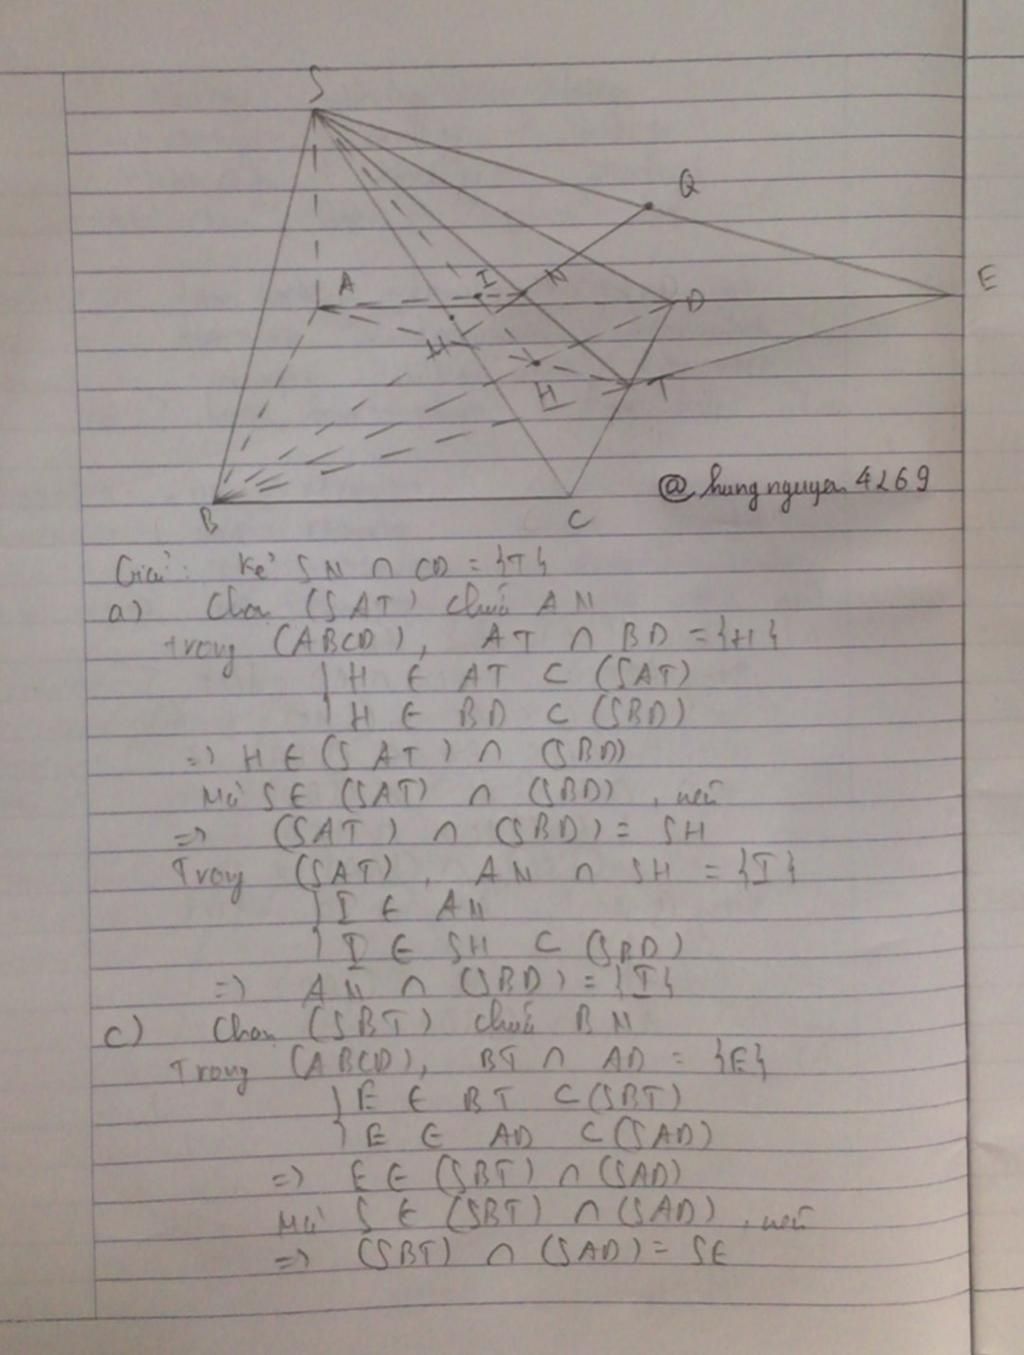 S
Q
E
A
I
N
D
M
H
T
@hungnguyen4269
B
C
Giải: Kẻ SN ∩ CD = {T}
a) Chọn (SAT) chứa AN
Trong (ABCD), AT ∩ BD = {H}
{ H ∈ AT ⊂ (SAT)
{ H ∈ BD ⊂ (SBD)
=> H ∈ (SAT) ∩ (SBD)
Mà S ∈ (SAT) ∩ (SBD), nên
=> (SAT) ∩ (SBD) = SH
Trong (SAT), AN ∩ SH = {I}
{ I ∈ AN
{ I ∈ SH ⊂ (SBD)
=> AN ∩ (SBD) = {I}
c) Chọn (SBT) chứa BN
Trong (ABCD), BT ∩ AD = {E}
{ E ∈ BT ⊂ (SBT)
{ E ∈ AD ⊂ (SAD)
=> E ∈ (SBT) ∩ (SAD)
Mà S ∈ (SBT) ∩ (SAD), nên
=> (SBT) ∩ (SAD) = SE